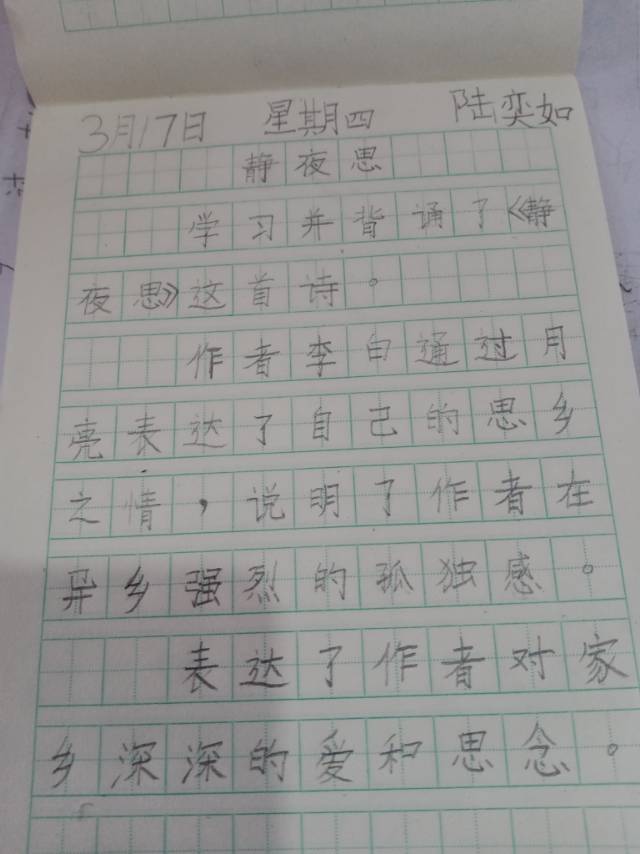 3月17日 星期四 陆奕如
静夜思
学习并背诵了《静
夜思》这首诗。
作者李白通过月
亮表达了自己的思乡
之情，说明了作者在
异乡强烈的孤独感。
表达了作者对家
乡深深的爱和思念。